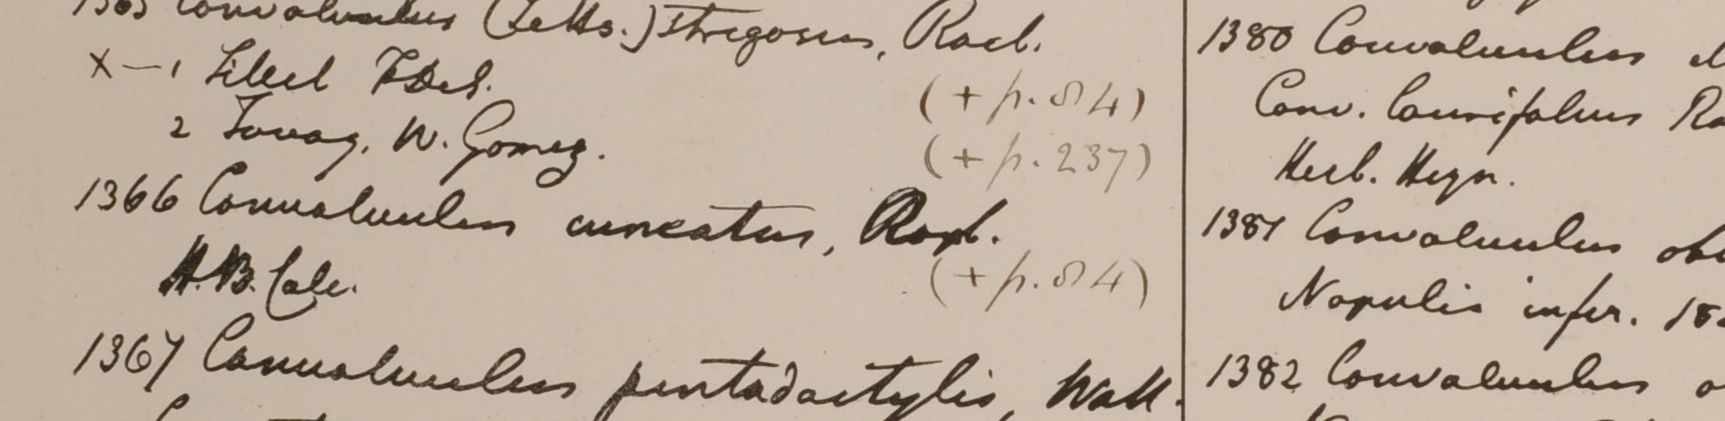 1365 Convolvulus (Letts.) strigosus, Roxb.
X-1 Silhet F.D.S.
(+ p. 84)
2 Tavoy, W. Gomez.
(+ p. 237)
1366 Convolvulus cuneatus, Roxb.
H.B. Calc.
(+ p. 84)
1367 Convolvulus pentadactylis, Wall.
1380 Convolvulus
Conv.
Herb. Heyn.
1381 Convolvulus
Napulis infer. 18
1382 Convolvulus